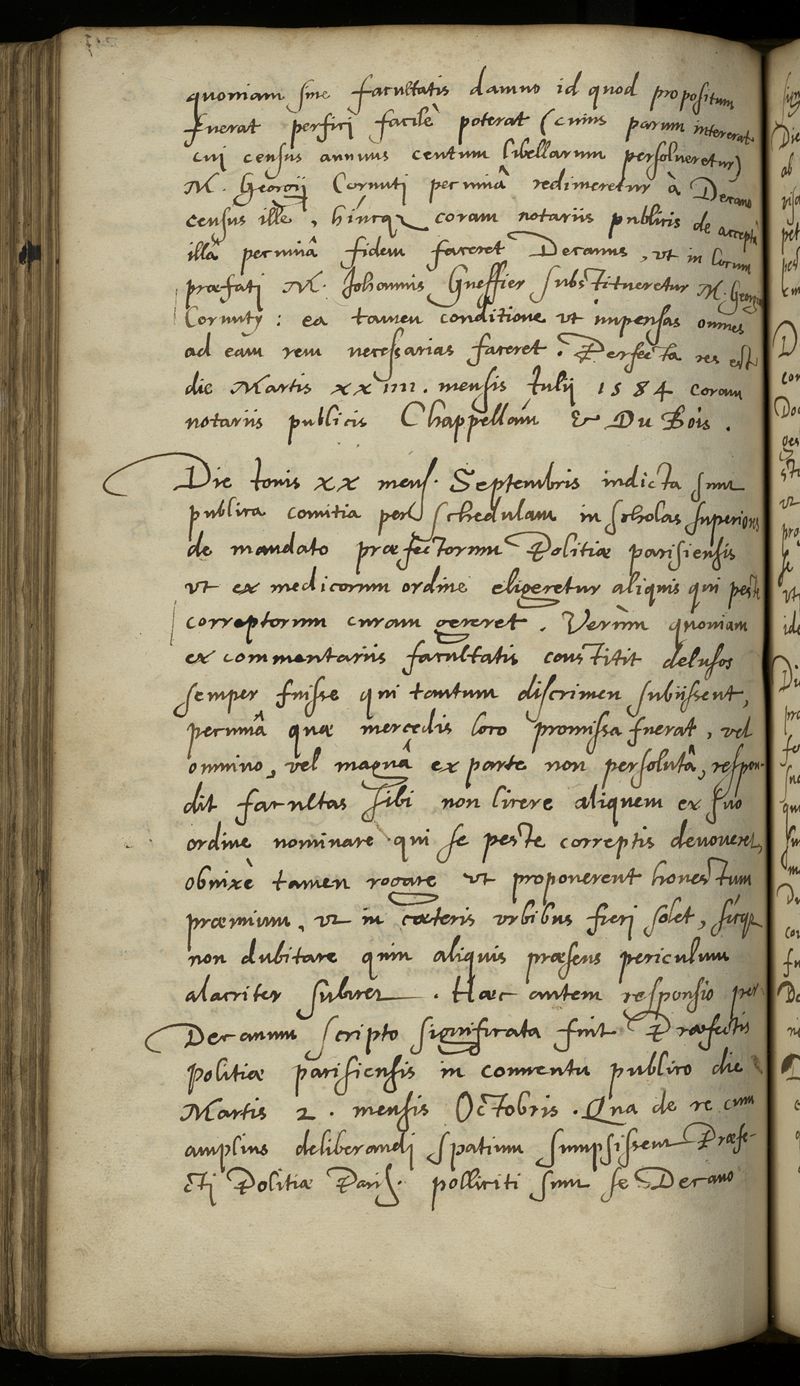 quoniam sine facultatis damno id quod propositum
fuerat perficj facilè poterat (cuius parum intererat
cuj census annuus centum libellarum persolueretur)
M. Georgij Cornutj pecuniâ redimeretur à Decano
census ille, hincq coram notariis publicis de accepta
illâ pecuniâ fidem faceret Decanus, vt in locum
præfatj M. Johannis Gueffier substitueretur M. Georgius
Cornuty: ea tamen conditione vt impensas omnes
ad eam rem necessarias faceret. Perfecta res est
die Martis xxiiii. mensis Julij 1584 coram
notariis publicis Chappellain & Du Bois.
Die Iouis xx mens. Septembris indicta sunt
publica comitia per schedulam in scholas superiores
de mandato præfectorum Politiæ parisiensis
vt ex medicorum ordine eligeretur aliquis qui peste
correptorum curam gereret. Verùm quoniam
ex commentariis facultatis constitit delusos
semper fuisse qui tantum discrimen subiissent,
pecuniâ quæ mercedis loco promissa fuerat, vel
omnino, vel magnâ ex parte non persolutâ, respon-
dit facultas sibi non licere aliquem ex suo
ordine nominare qui se peste correptis deuoueret,
obnixè tamen rogare vt proponerent honestum
præmium, vt in cæteris vrbibus fierj solet, sicq
non dubitare quin aliquis præsens periculum
alacriter subiret. Hæc autem responsio per
Decanum scripto significata fuit Præfectis
Politiæ parisiensis in conuentu publico die
Martis 2. mensis Octobris. Qua de re cum
amplius deliberandj spatium sumpsissent Præfe-
ctj Politiæ Paris. polliciti sunt se Decano